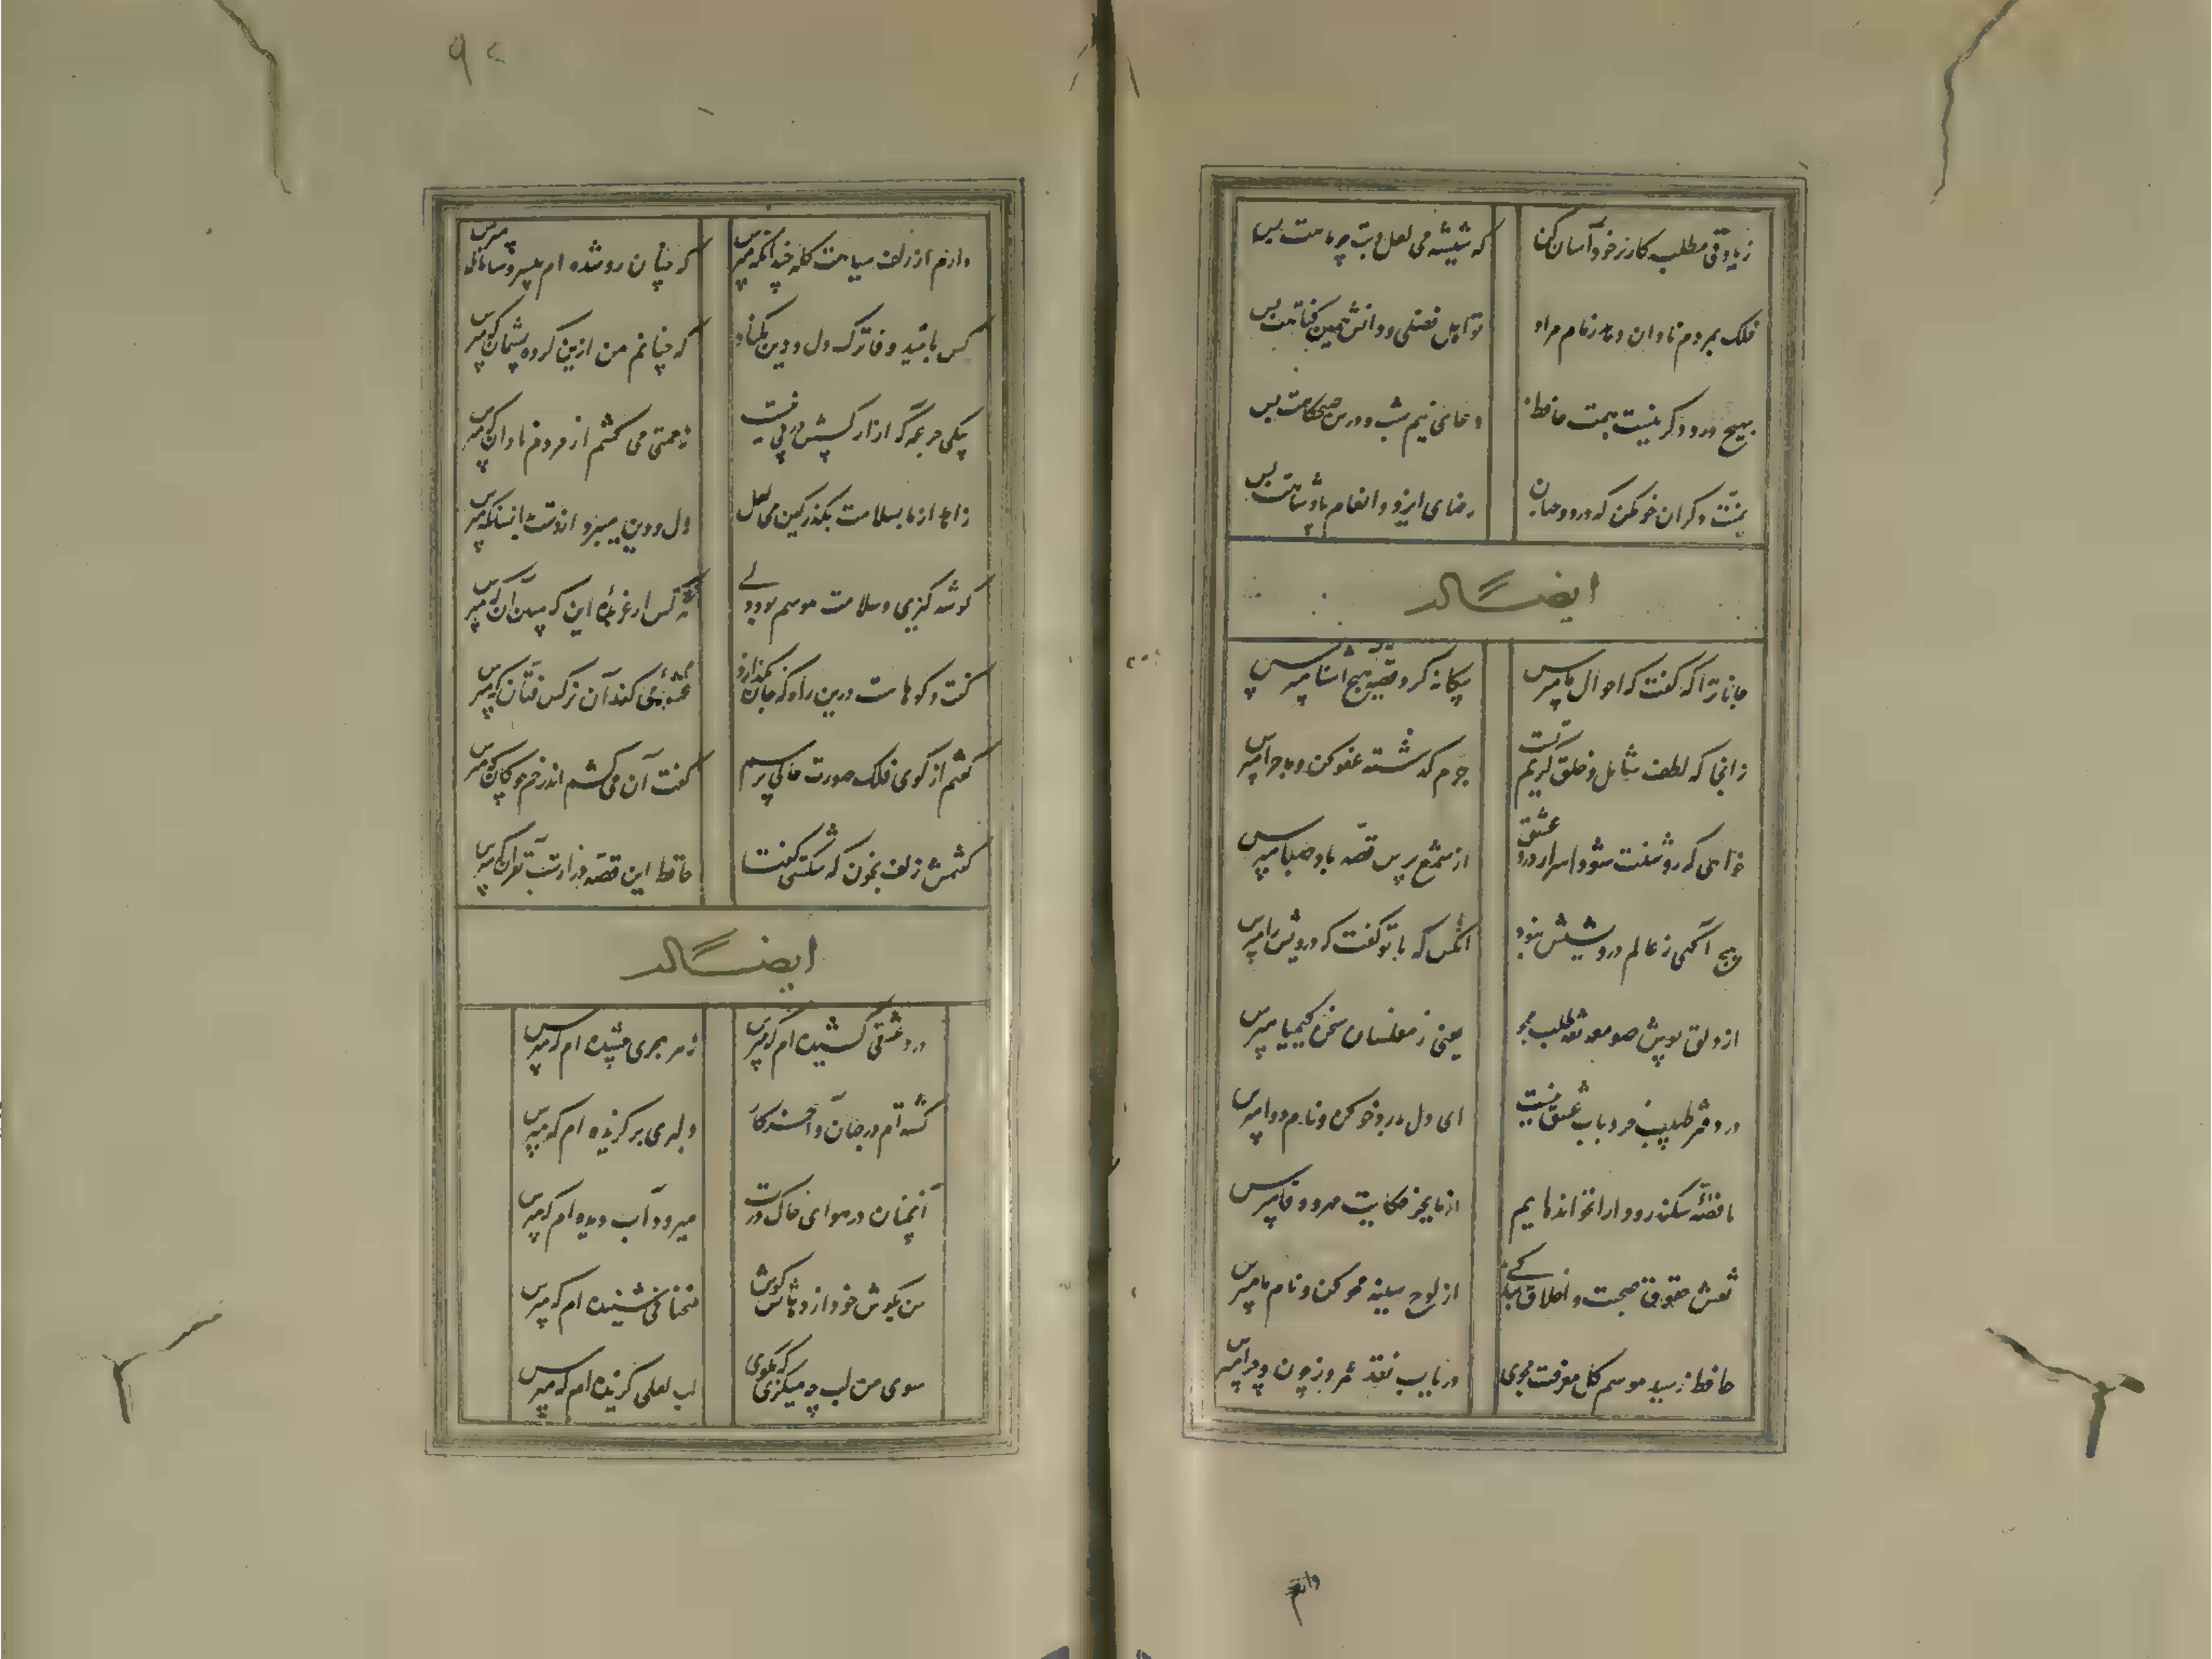 زیادتی مطلب کار بر خود آسان کن
که شیشه می لعل و بتی چو ماهت بس
فلک بمردم نادان دهد زمام مراد
تو اهل فضلی و دانش همین گناهت بس
بهیچ ورد دگر نیست همت حافظ
دعای نیم شب و درس صبحگاهت بس
بمنت دگران خو مکن که در دو جهان
رضای ایزد و انعام پادشاهت بس
ایضاً له
جانا ترا که گفت که احوال ما مپرس
بیگانه گرد و قصه هیچ آشنا مپرس
زانجا که لطف شامل و خلق کریم تست
جرم گذشته عفو کن و ماجرا مپرس
خواهی که روشنت شود اسرار درد عشق
از شمع پرس قصه باد صبا مپرس
هیچ آگهی ز عالم درویشیش نبود
آنکس که با تو گفت که درویش را مپرس
از دلق پوش صومعه نقد طلب مجو
یعنی ز مفلسان سخن کیمیا مپرس
در دفتر طبیب خرد باب عشق نیست
ای دل بدرد خو کن و نام دوا مپرس
ما قصه سکندر و دارا نخوانده ایم
از ما بجز حکایت مهر و وفا مپرس
نقش حقوق صحبت و اخلاق بندگی
از لوح سینه محو کن و نام ما مپرس
حافظ رسید موسم گل معرفت مجوی
دریاب نقد عمر و ز چون و چرا مپرس
دارم
۹۲
دارم از زلف سیاهت گله چندانکه مپرس
که چنان زو شده ام بیسر و سامان که مپرس
کس بامید وفا ترک دل و دین مکناد
که چنانم من ازین کرده پشیمان که مپرس
بیکی جرعه که آزار کسش در پی نیست
زحمتی می کشم از مردم نادان که مپرس
زاهد از ما بسلامت بگذر کین می لعل
دل و دین میبرد از دست بدانسان که مپرس
گوشه گیری و سلامت هوسم بود ولی
این که مبین آن که مپرس
گفت و گوهاست درین راه که جان بگدازد
هر کسی عربده
شیوه می کند آن نرگس فتان که مپرس
گفتم از گوی فلک صورت حالی پرسم
گفت آن می کشم اندر خم چوگان که مپرس
گفتمش زلف بخون که شکستی گفتا
حافظ این قصه درازست بقرآن که مپرس
ایضاً له
درد عشقی کشیده ام که مپرس
زهر هجری چشیده ام که مپرس
گشته ام در جهان و آخر کار
دلبری برگزیده ام که مپرس
آنچنان در هوای خاک درت
میرود آب دیده ام که مپرس
من بگوش خود از دهانش دوش
سخنانی شنیده ام که مپرس
سوی من لب چه میگزی که مگوی
لب لعلی گزیده ام که مپرس